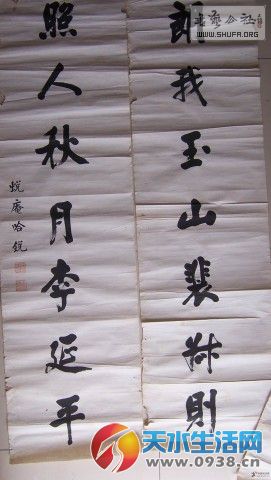 书艺公社
WWW.SHUFA.ORG
朗我玉山裴叔則
照人秋月李延平
蜕庵哈銳
天水生活网
www.0938.cn